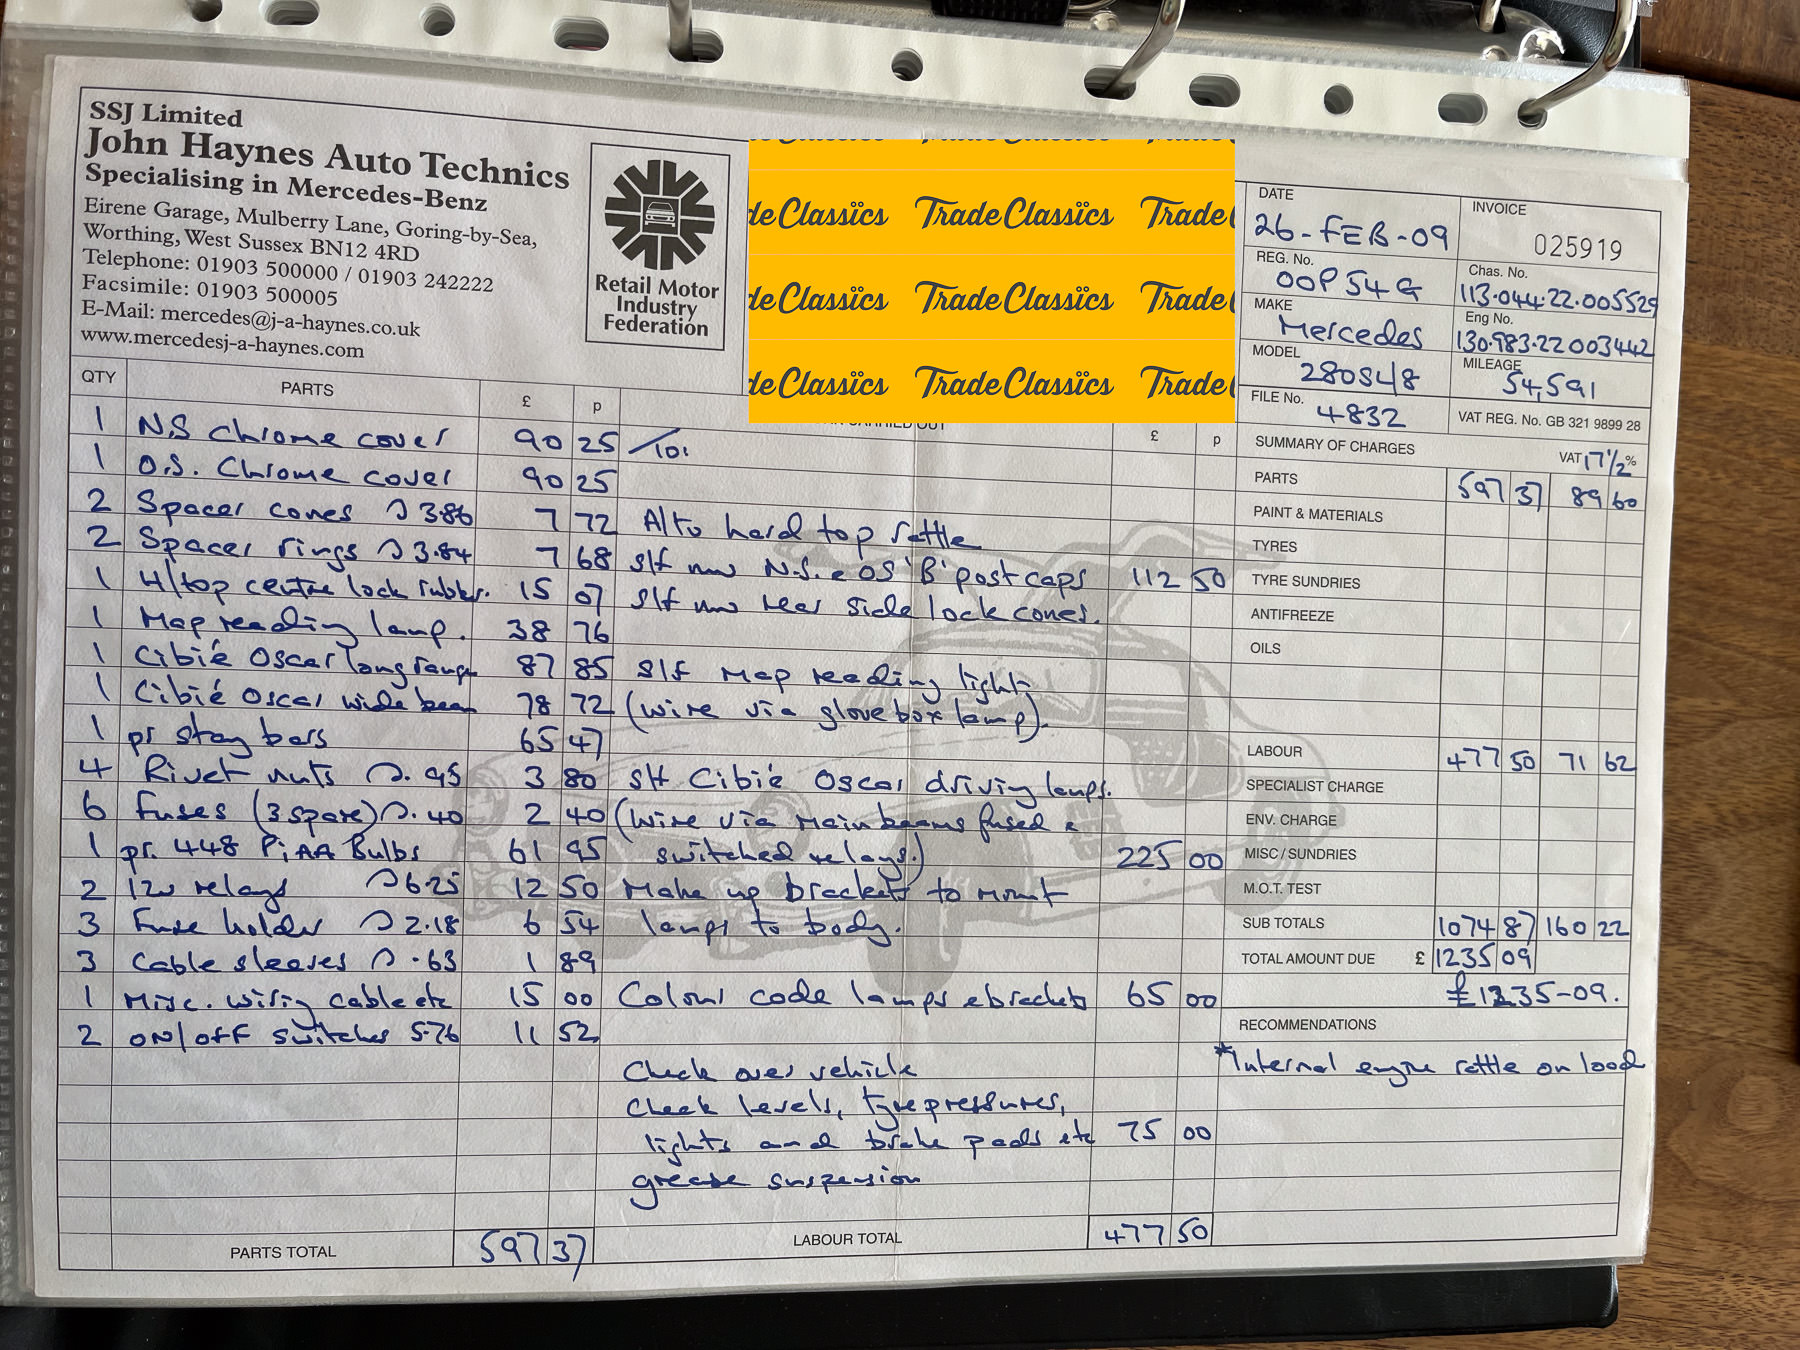 SSJ Limited
John Haynes Auto Technics
Specialising in Mercedes-Benz
Eirene Garage, Mulberry Lane, Goring-by-Sea,
Worthing, West Sussex BN12 4RD
Telephone: 01903 500000 / 01903 242222
Facsimile: 01903 500005
E-Mail: mercedes@j-a-haynes.co.uk
www.mercedesj-a-haynes.com
Retail Motor
Industry
Federation
TradeClassïcs
deClassïcs TradeClassïcs Trade
deClassïcs TradeClassïcs Trade
deClassïcs TradeClassïcs Trade
DATE
26-FEB-09
INVOICE
025919
REG. No.
OOP 54G
Chas. No.
113.044.22.005529
MAKE
Mercedes
Eng No.
130.983.22003442
MODEL
280SL/8
MILEAGE
54,591
FILE No.
4832
VAT REG. No. GB 321 9899 28
QTY PARTS £ p
1 N.S Chrome cover 90 25
1 O.S. Chrome cover 90 25
2 Spacer cones 3.86 7 72
2 Spacer rings 3.84 7 68
1 H/top centre lock rubber. 15 07
1 Map reading lamp. 38 76
1 Cibié Oscar long range 87 85
1 Cibié Oscar wide beam 78 72
1 pr stay bars 65 47
4 Rivet nuts .95 3 80
6 Fuses (3 spare) .40 2 40
1 pr. 448 PiAA Bulbs 61 95
2 12v relays 6.25 12 50
3 Fuse holder 2.18 6 54
3 Cable sleeves .63 1 89
1 Misc. wiring cable etc 15 00
2 ON/OFF switches 5.76 11 52
PARTS TOTAL 597 37
CARRIED OUT £ p
/Toi
A/to hard top rattle
S/f new N.S. & OS 'B' post caps 112 50
S/f new rear side lock cones.
S/f Map reading light
(wire via glovebox lamp).
S/f Cibié Oscar driving lamps.
(wire via Main beams fused &
switched relays.) 225 00
Make up brackets to mount
lamps to body.
Colour code lamps & brackets 65 00
Check over vehicle
Check levels, tyre pressures,
lights and brake pads etc 75 00
grease suspension
LABOUR TOTAL 477 50
SUMMARY OF CHARGES VAT 17½%
PARTS 597 37 89 60
PAINT & MATERIALS
TYRES
TYRE SUNDRIES
ANTIFREEZE
OILS
LABOUR 477 50 71 62
SPECIALIST CHARGE
ENV. CHARGE
MISC / SUNDRIES
M.O.T. TEST
SUB TOTALS 1074 87 160 22
TOTAL AMOUNT DUE £ 1235 09
£1235-09.
RECOMMENDATIONS
*Internal engine rattle on load